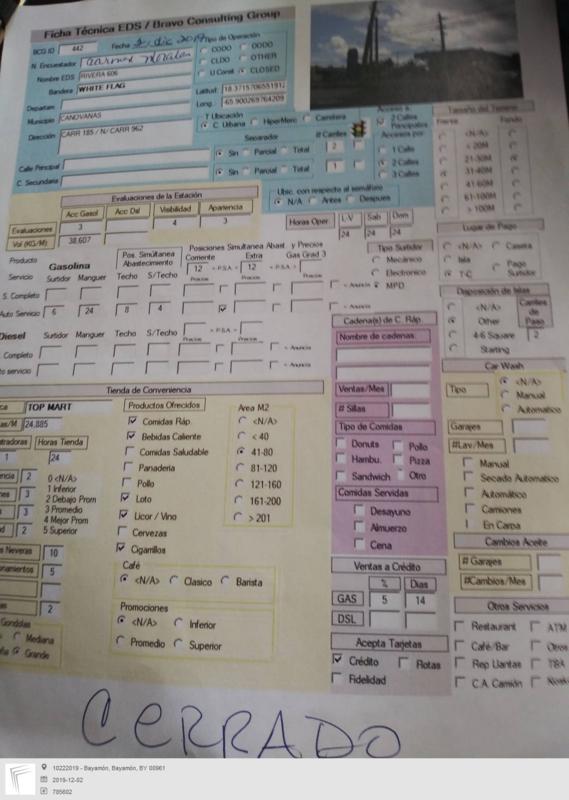 Ficha Técnica EDS / Bravo Consulting Group
BCG ID 442 Fecha 2/dic 2019 Tipo de Operación
N. Encuestador Carmen Morales CODO DODO
CLDO OTHER
Nombre EDS RIVERA 606 U Const CLOSED
Bandera WHITE FLAG Latitud: 18.3715706551912
Departam Long.: -65.900269764209
Municipio CANOVANAS T Ubicación
C. Urbana HiperMerc Carretera
Dirección CARR 185 / N/ CARR 962 Separador # Carriles
Calle Principal Sin Parcial Total 2
C. Secundaria Sin Parcial Total 1
Acceso a
2 Calles
Principales
Accesos por
1 Calle
2 Calles
3 Calles
Tamaño del Terreno
Frente Fondo
<N/A>
< 20M
21-30M
31-40M
41-60M
61-100M
> 100M
Evaluaciones de la Estación
Acc Gasol Acc Dsl Visibilidad Apariencia
Evaluaciones 3 4 3
Vol (KG/M) 38.607
Ubic. con respecto al semáforo
N/A Antes Despues
Horas Oper L-V Sab Dom
24 24 24
Lugar de Pago
<N/A> Caseta
Isla Pago
T-C Surtidor
Producto Gasolina Pos. Simultánea Abastecimiento
Posiciones Simultanea Abast. y Precios
Corriente Extra Gas Grad 3
12 < P.S.A > 12 < P.S.A >
Servicio Surtidor Manguer Techo S/Techo Precios Precios Precios
S. Completo < Anuncia
Auto Servicio 6 24 8 4
Tipo Surtidor
Mecánico
Electronico
MPD
Disposición de Islas
<N/A>
Other
4-6 Square
Starting
Carriles de Paso
2
Diesel Surtidor Manguer Techo S/Techo < P.S.A >
Completo < Anuncia
servicio < Anuncia
Cadena(s) de C. Ráp.
Nombre de cadenas:
Ventas/Mes
# Sillas
Tipo de Comidas
Donuts Pollo
Hambu. Pizza
Sandwich Otro
Comidas Servidas
Desayuno
Almuerzo
Cena
Car Wash
Tipo <N/A>
Manual
Automatico
Garajes
#Lav/Mes
Manual
Secado Automatico
Automático
Camiones
En Carpa
Cambios Aceite
# Garajes
#Cambios/Mes
Tienda de Conveniencia
TOP MART
24,885
Horas Tienda
1 24
2 0 <N/A>
1 Inferior
3 2 Debajo Prom
3 3 Promedio
4 Mejor Prom
2 5 Superior
Neveras 10
5
2
Gondolas
Mediana
Grande
Productos Ofrecidos
Comidas Ráp.
Bebidas Caliente
Comidas Saludable
Panaderia
Pollo
Loto
Licor / Vino
Cervezas
Cigarrillos
Area M2
<N/A>
< 40
41-80
81-120
121-160
161-200
> 201
Café
<N/A> Clasico Barista
Promociones
<N/A> Inferior
Promedio Superior
Ventas a Crédito
% Dias
GAS 5 14
DSL
Acepta Tarjetas
Crédito Flotas
Fidelidad
Otros Servicios
Restaurant ATM
Café/Bar Otros
Rep Llantas TBA
C.A. Camión Kiosk
CERRADO
10222019 - Bayamón, Bayamón, BY 00961
2019-12-02
785602